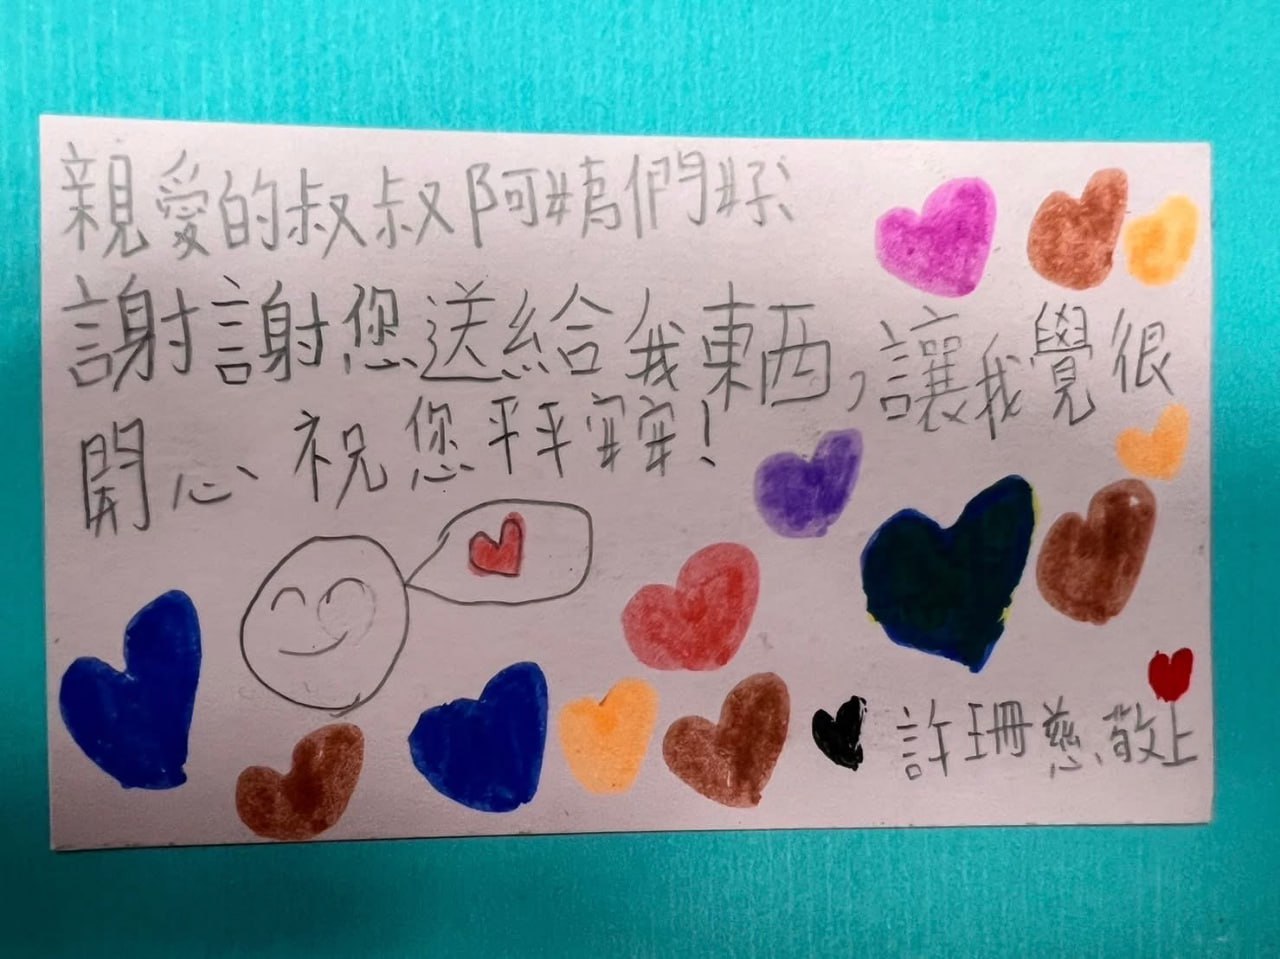 親愛的叔叔阿姨們好、
謝謝您送給我東西,讓我覺很
開心、祝您平平安安!
許珊慈、敬上